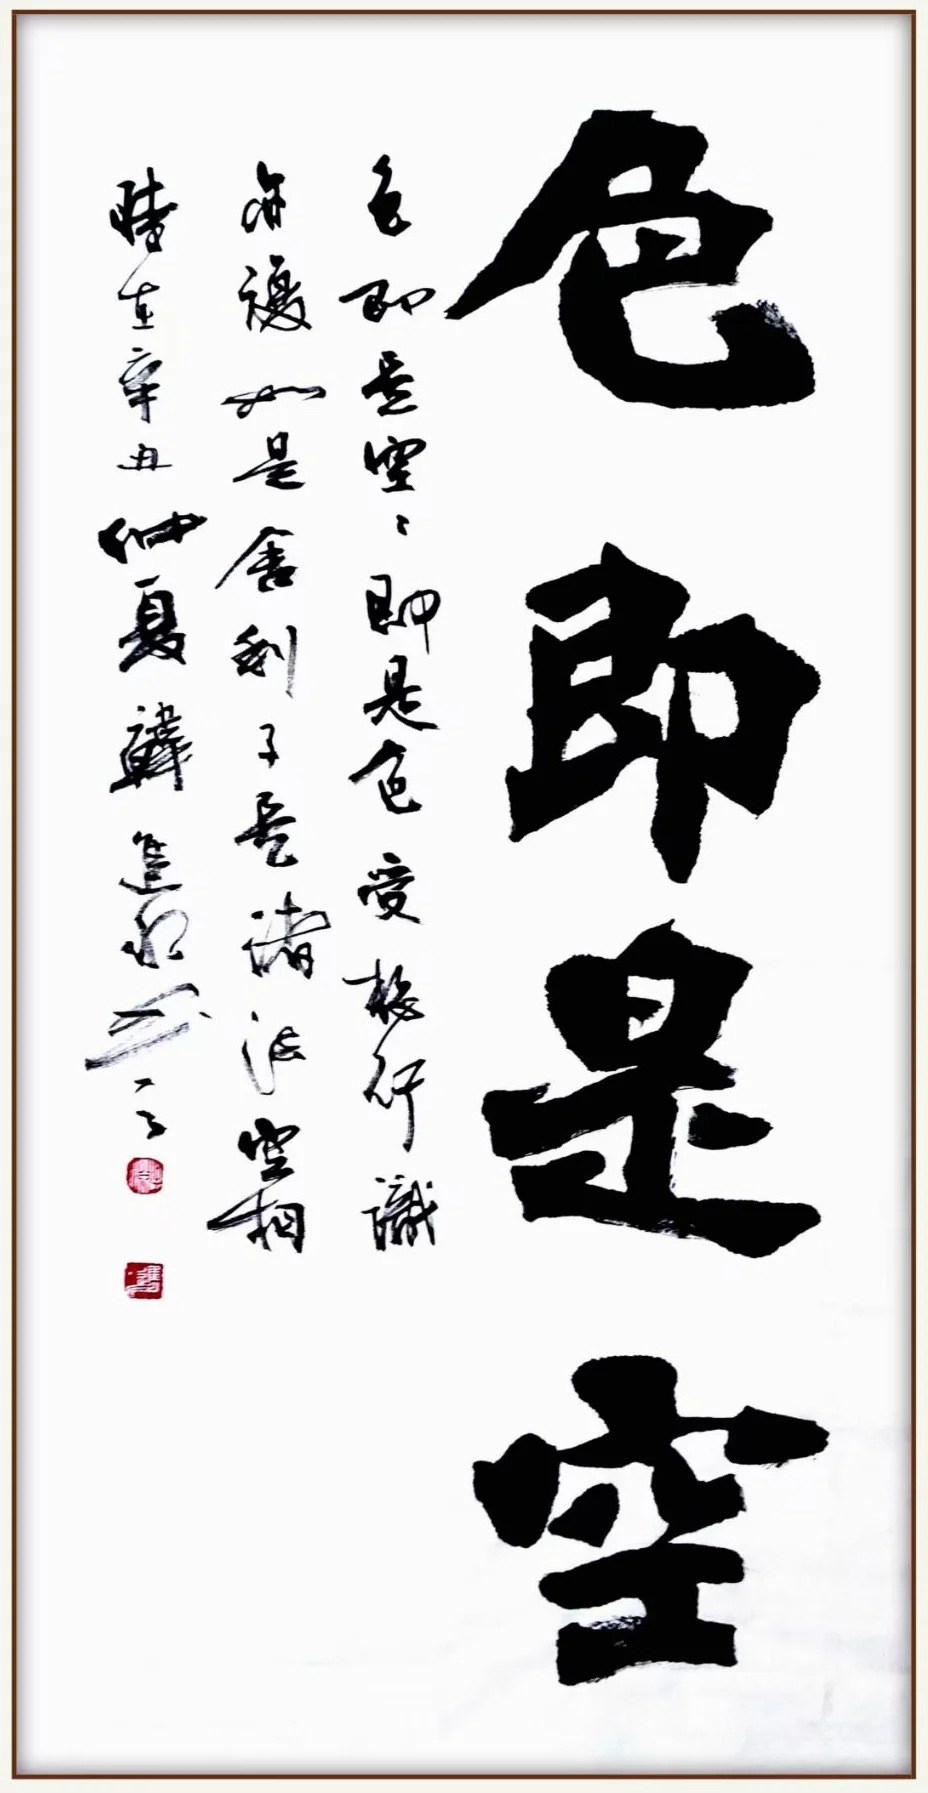 色即是空
色即是空〻即是色受想行識
亦復如是舍利子是諸法空相
時在辛丑仲夏韓進水書